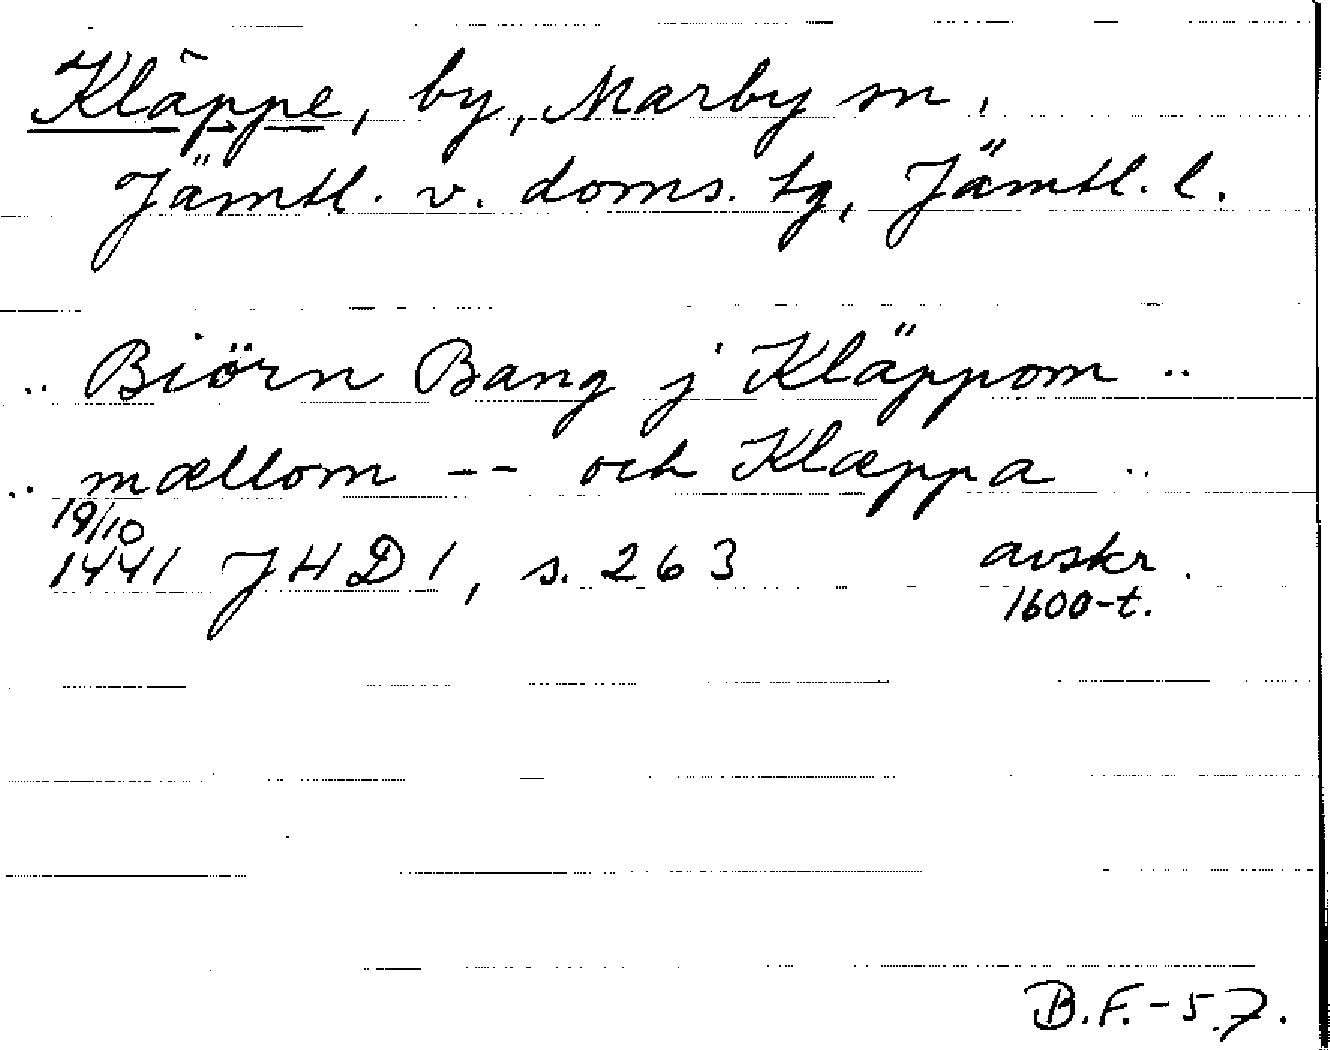 Kläppe, by, Marby sn,
Jämtl. v. doms. tg, Jämtl. l.
.. Biörn Bang j Kläppom ..
.. mællom -- och Klæppa ..
19/10
1441 JHD 1, s. 263 avskr.
1600-t.
B.F.-57.